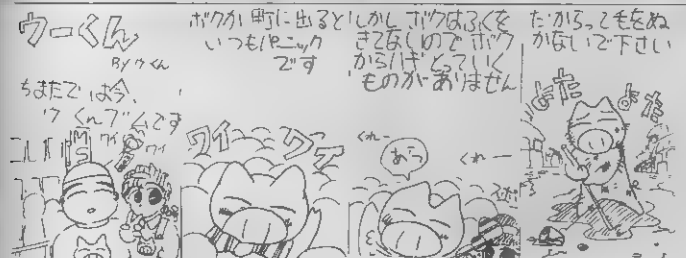 ウーくん
By ウくん
ちまたでは今、
ウくんブームです
ワイ
ワイ
ボクが町に出ると
いつもパニック
です
ワイ
ワー
しかしボクはふくを
きてないのでボク
からはぎとっていく
ものがありません
くれー
あうっ
くれー
だからって毛をぬ
かないで下さい
よた
よた